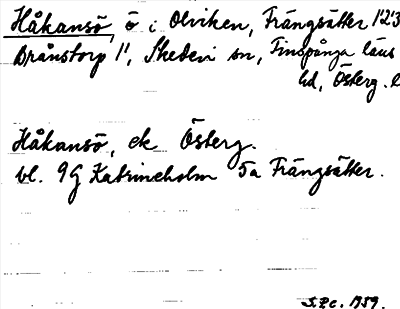 Håkansö, ö i Olviken, Frängsätter 1²3
Brånstorp 1¹, Skedevi sn, Finspånga läns
hd, Österg. l
Håkansö, ek Österg.
bl. 9G Katrineholm 5a Frängsätter.
S.P.C. 1959.